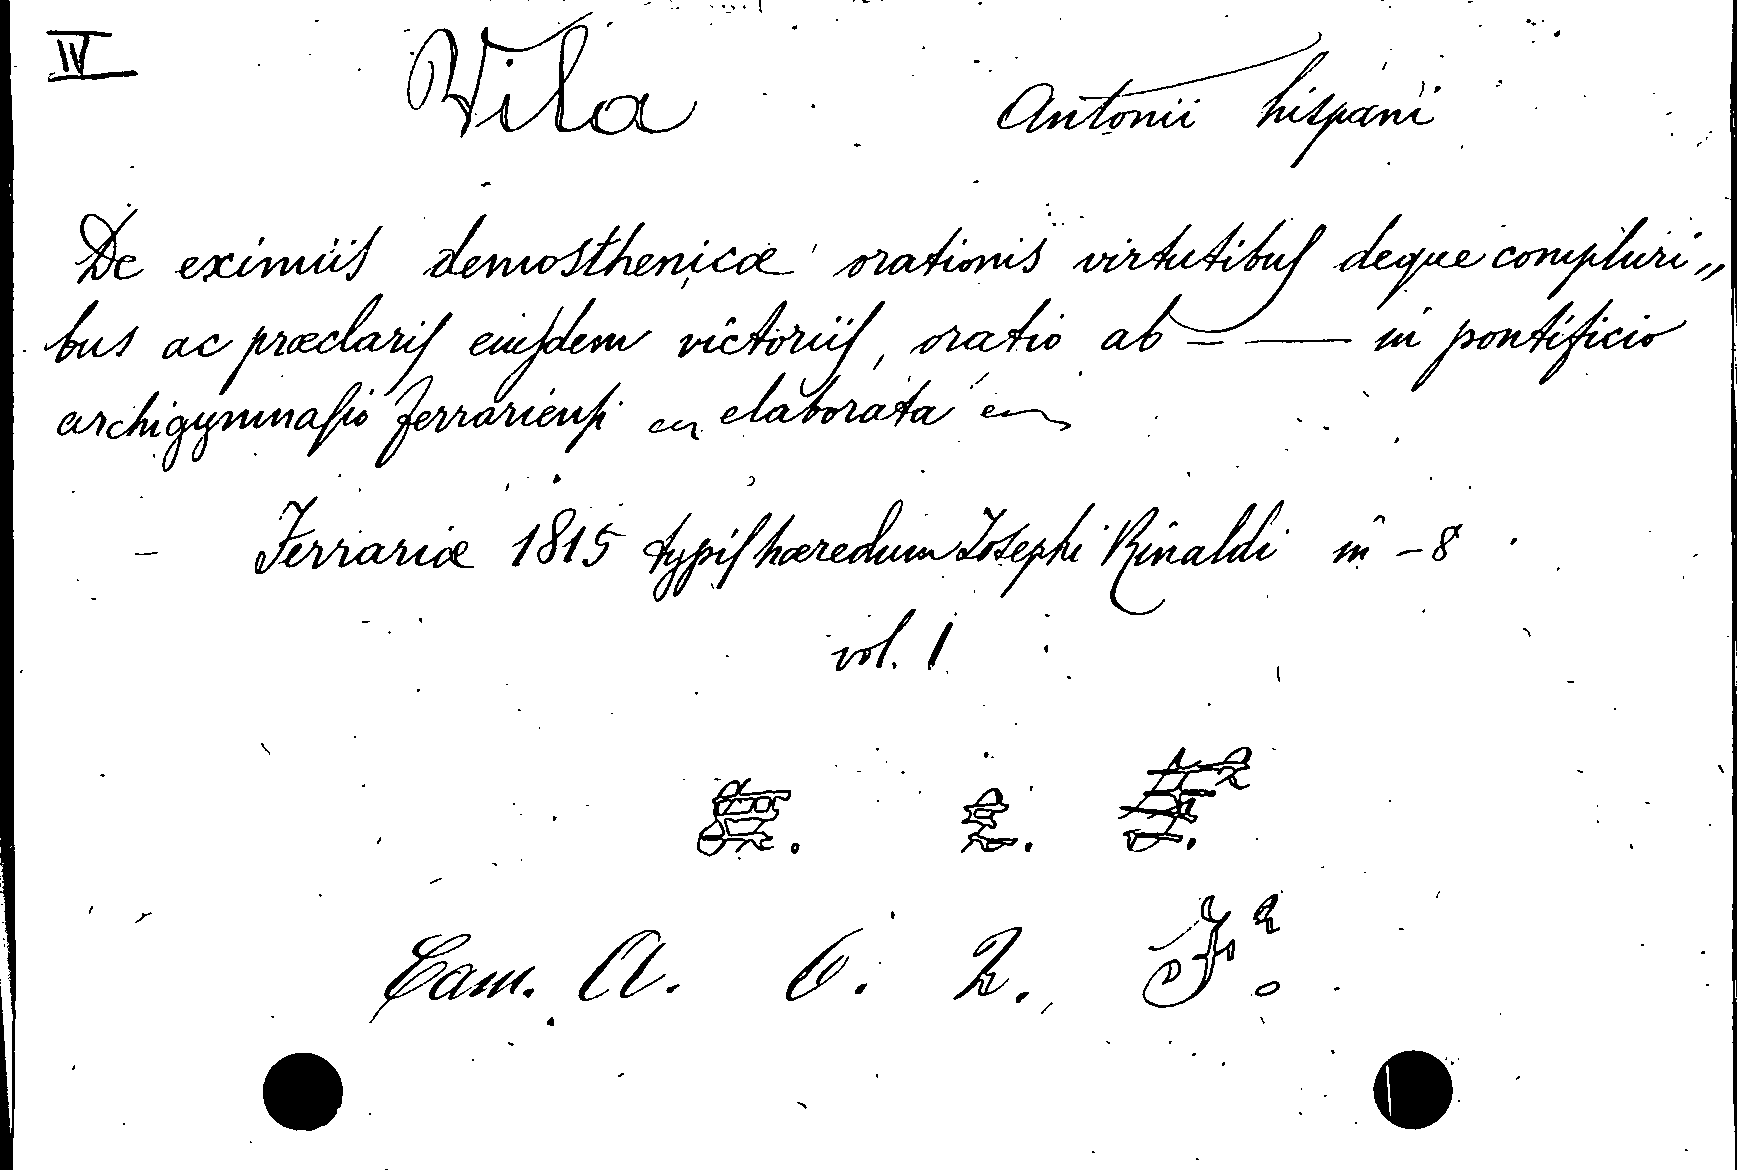 IV Vila Antonii hispani
De eximiis demosthenicæ orationis virtutibus deque compluri„
bus ac præclaris eiusdem victoriis, oratio ab = — in pontificio
archigymnasio ferrariensi elaborata
- Ferrariæ 1815 typis hæredum Josephi Rinaldi in-8
vol. 1
Cam. A. 6. 2. F².